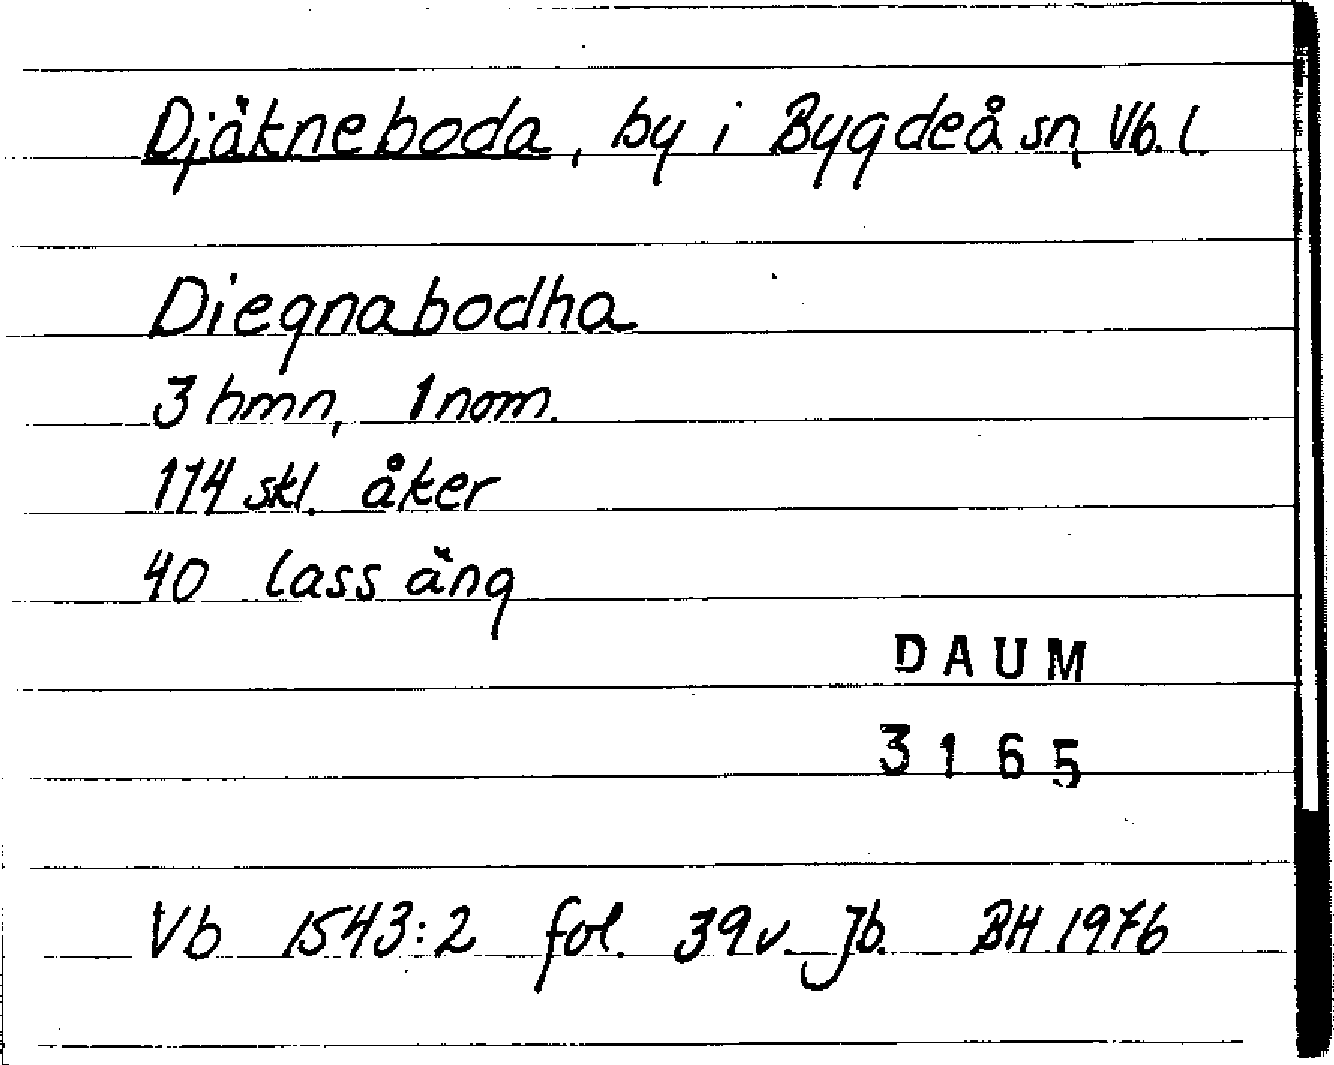 Djäkneboda, by i Bygdeå sn, Vb. l.
Diegnabodha
3 hmn, 1 nom.
114 skl. åker
40 lass äng
DAUM
3165
Vb 1543:2 fol. 39v. Jb. BH 1976